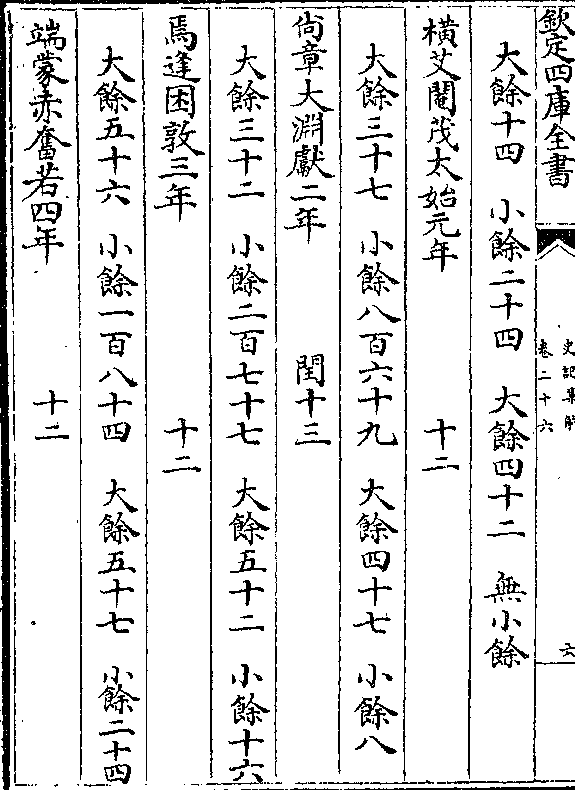 欽定四庫全書
史記集解
卷二十六
六
大餘十四　小餘二十四　大餘四十二　無小餘
橫艾閹茂太始元年　十二
大餘三十七　小餘八百六十九　大餘四十七　小餘八
尚章大淵獻二年　閏十三
大餘三十二　小餘二百七十七　大餘五十二　小餘十六
焉逢困敦三年　十二
大餘五十六　小餘一百八十四　大餘五十七　小餘二十四
端蒙赤奮若四年　十二